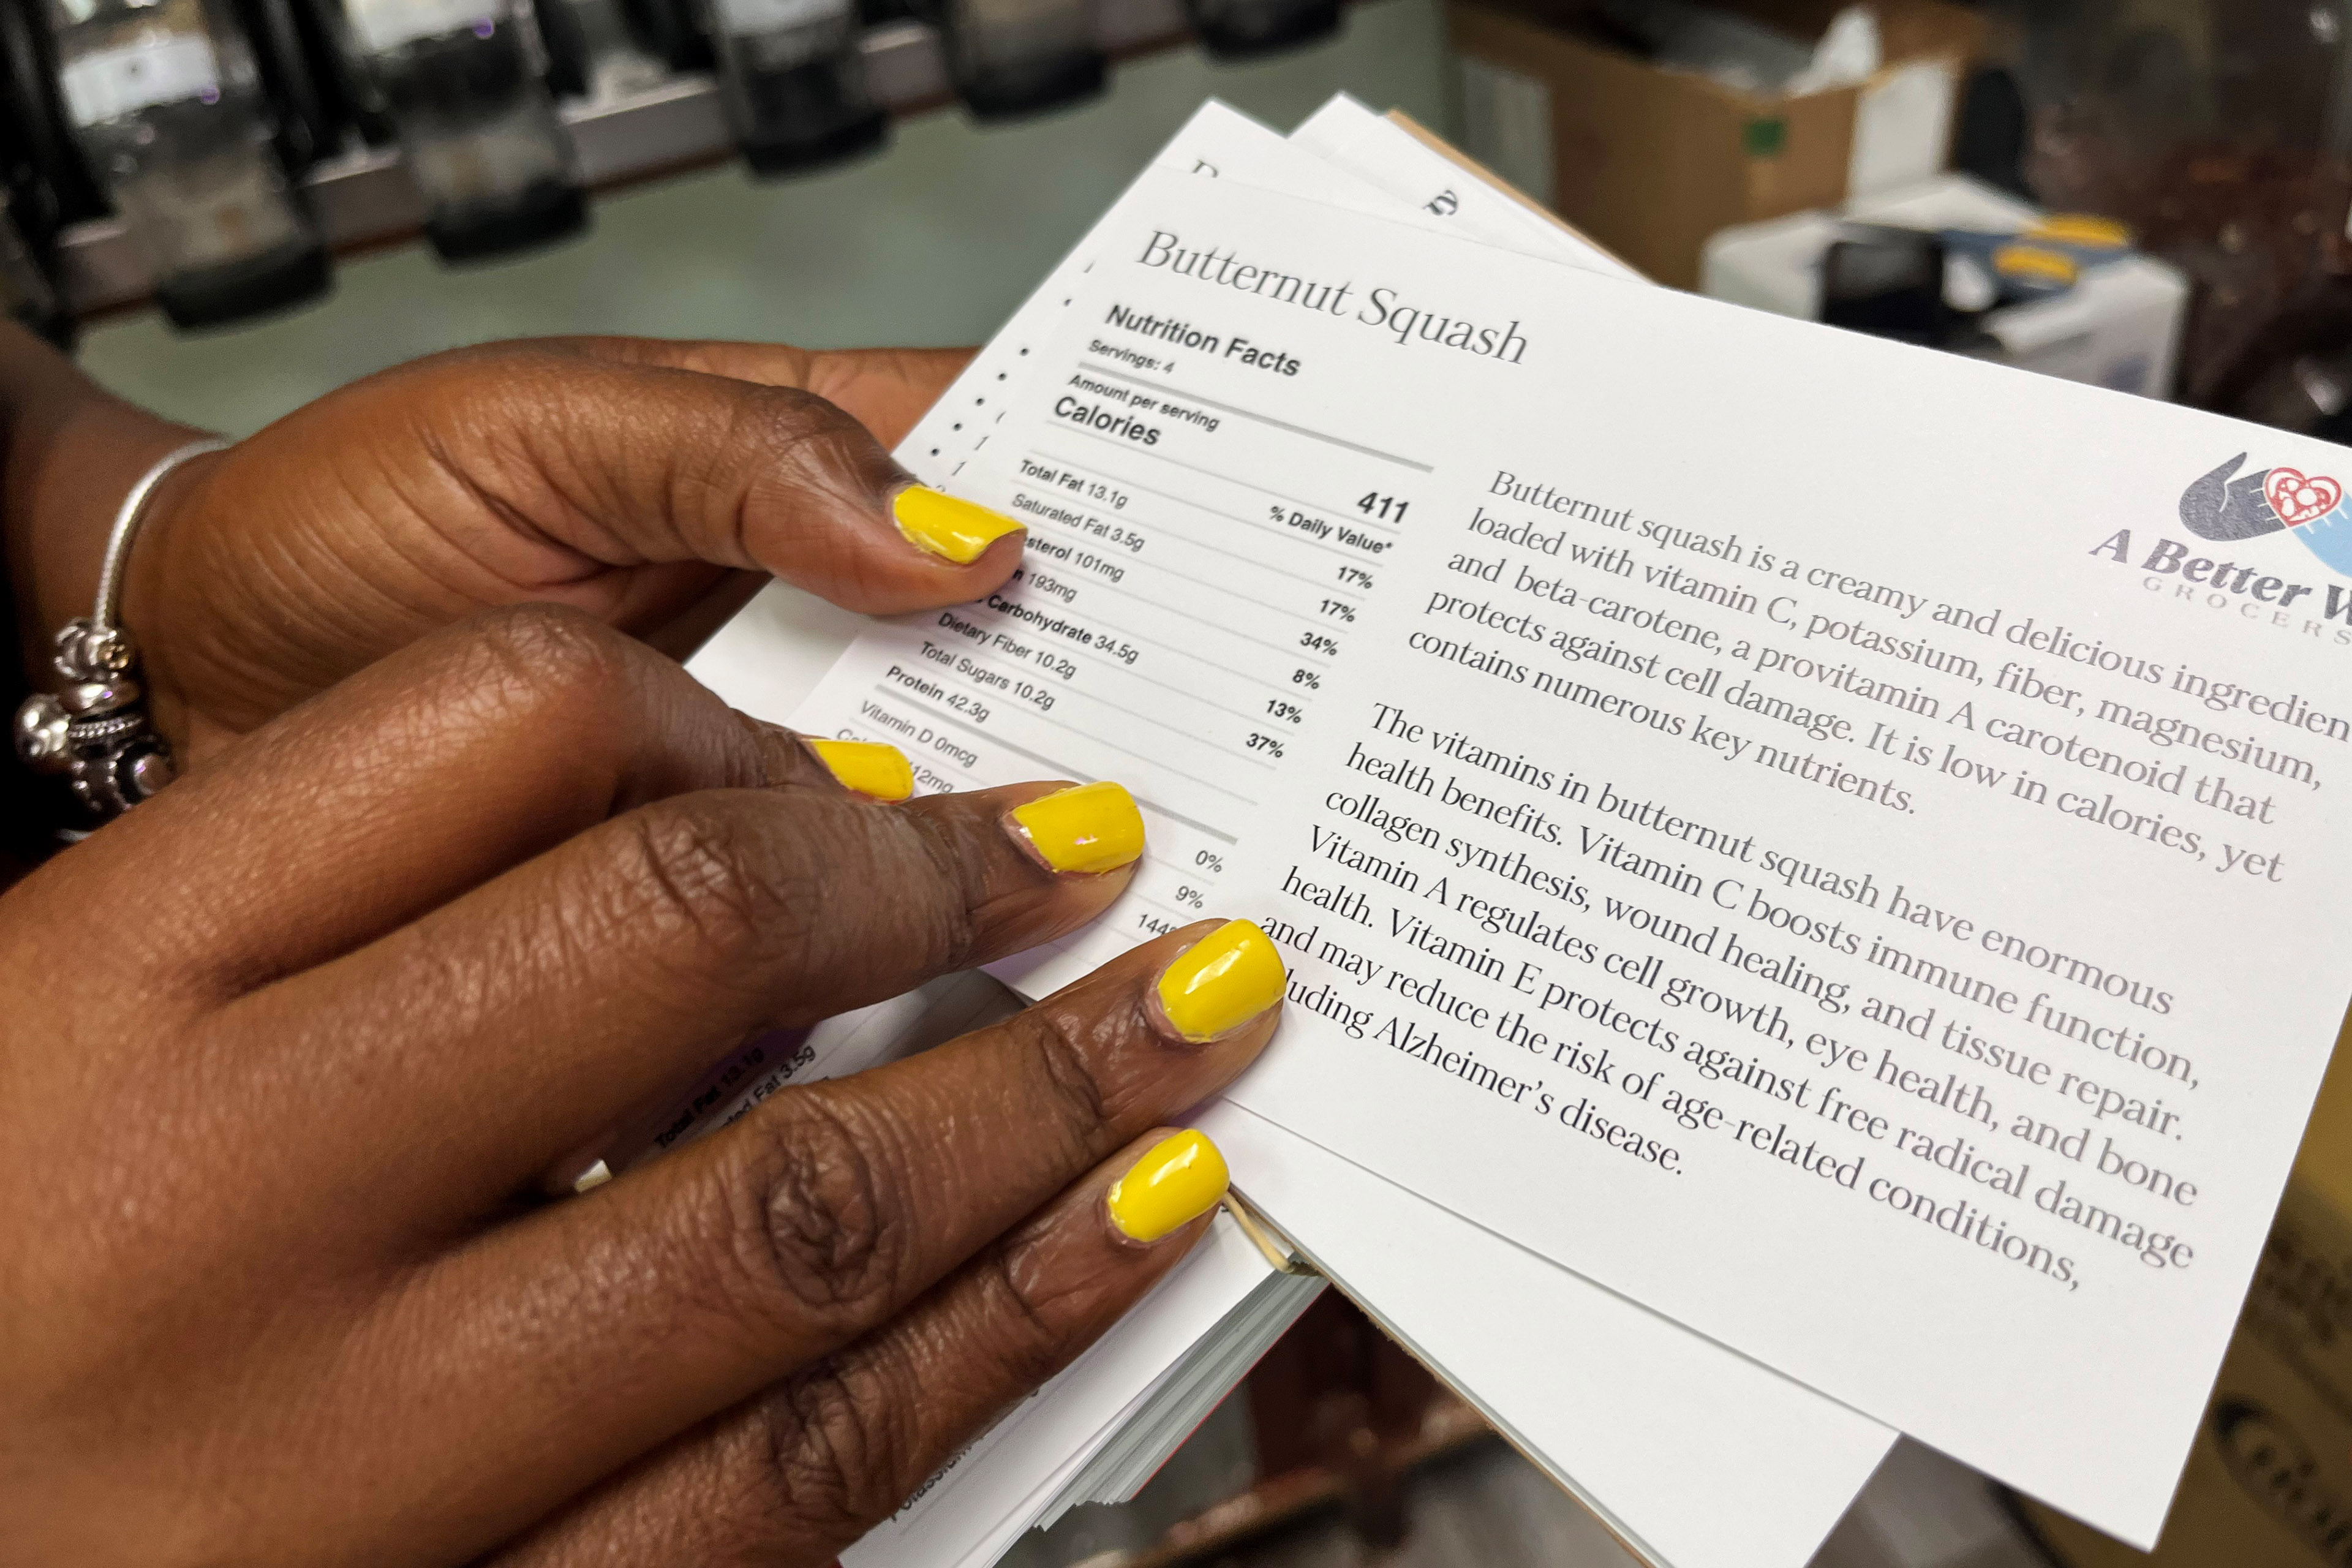 Butternut Squash
Nutrition Facts
Servings: 4
Amount per serving
Calories 411
% Daily Value*
Total Fat 13.1g 17%
Saturated Fat 3.5g 17%
sterol 101mg 34%
n 193mg 8%
Carbohydrate 34.5g 13%
Dietary Fiber 10.2g 37%
Total Sugars 10.2g
Protein 42.3g
Vitamin D 0mcg 0%
12mg 9%
144
Butternut squash is a creamy and delicious ingredien
loaded with vitamin C, potassium, fiber, magnesium,
and beta-carotene, a provitamin A carotenoid that
protects against cell damage. It is low in calories, yet
contains numerous key nutrients.
The vitamins in butternut squash have enormous
health benefits. Vitamin C boosts immune function,
collagen synthesis, wound healing, and tissue repair.
Vitamin A regulates cell growth, eye health, and bone
health. Vitamin E protects against free radical damage
and may reduce the risk of age-related conditions,
luding Alzheimer's disease.
A Better W
GROCERS
Total Fat 13.1g
ted Fat 3.5g